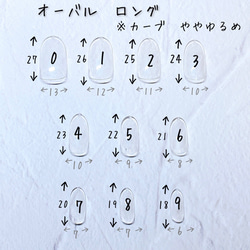 オーバル ロング
※カーブ ややゆるめ
27 0 26 1 25 2 24 3
13 12 11 10
23 4 22 5 21 6
10 9 8
20 7 19 8 18 9
7 7 6